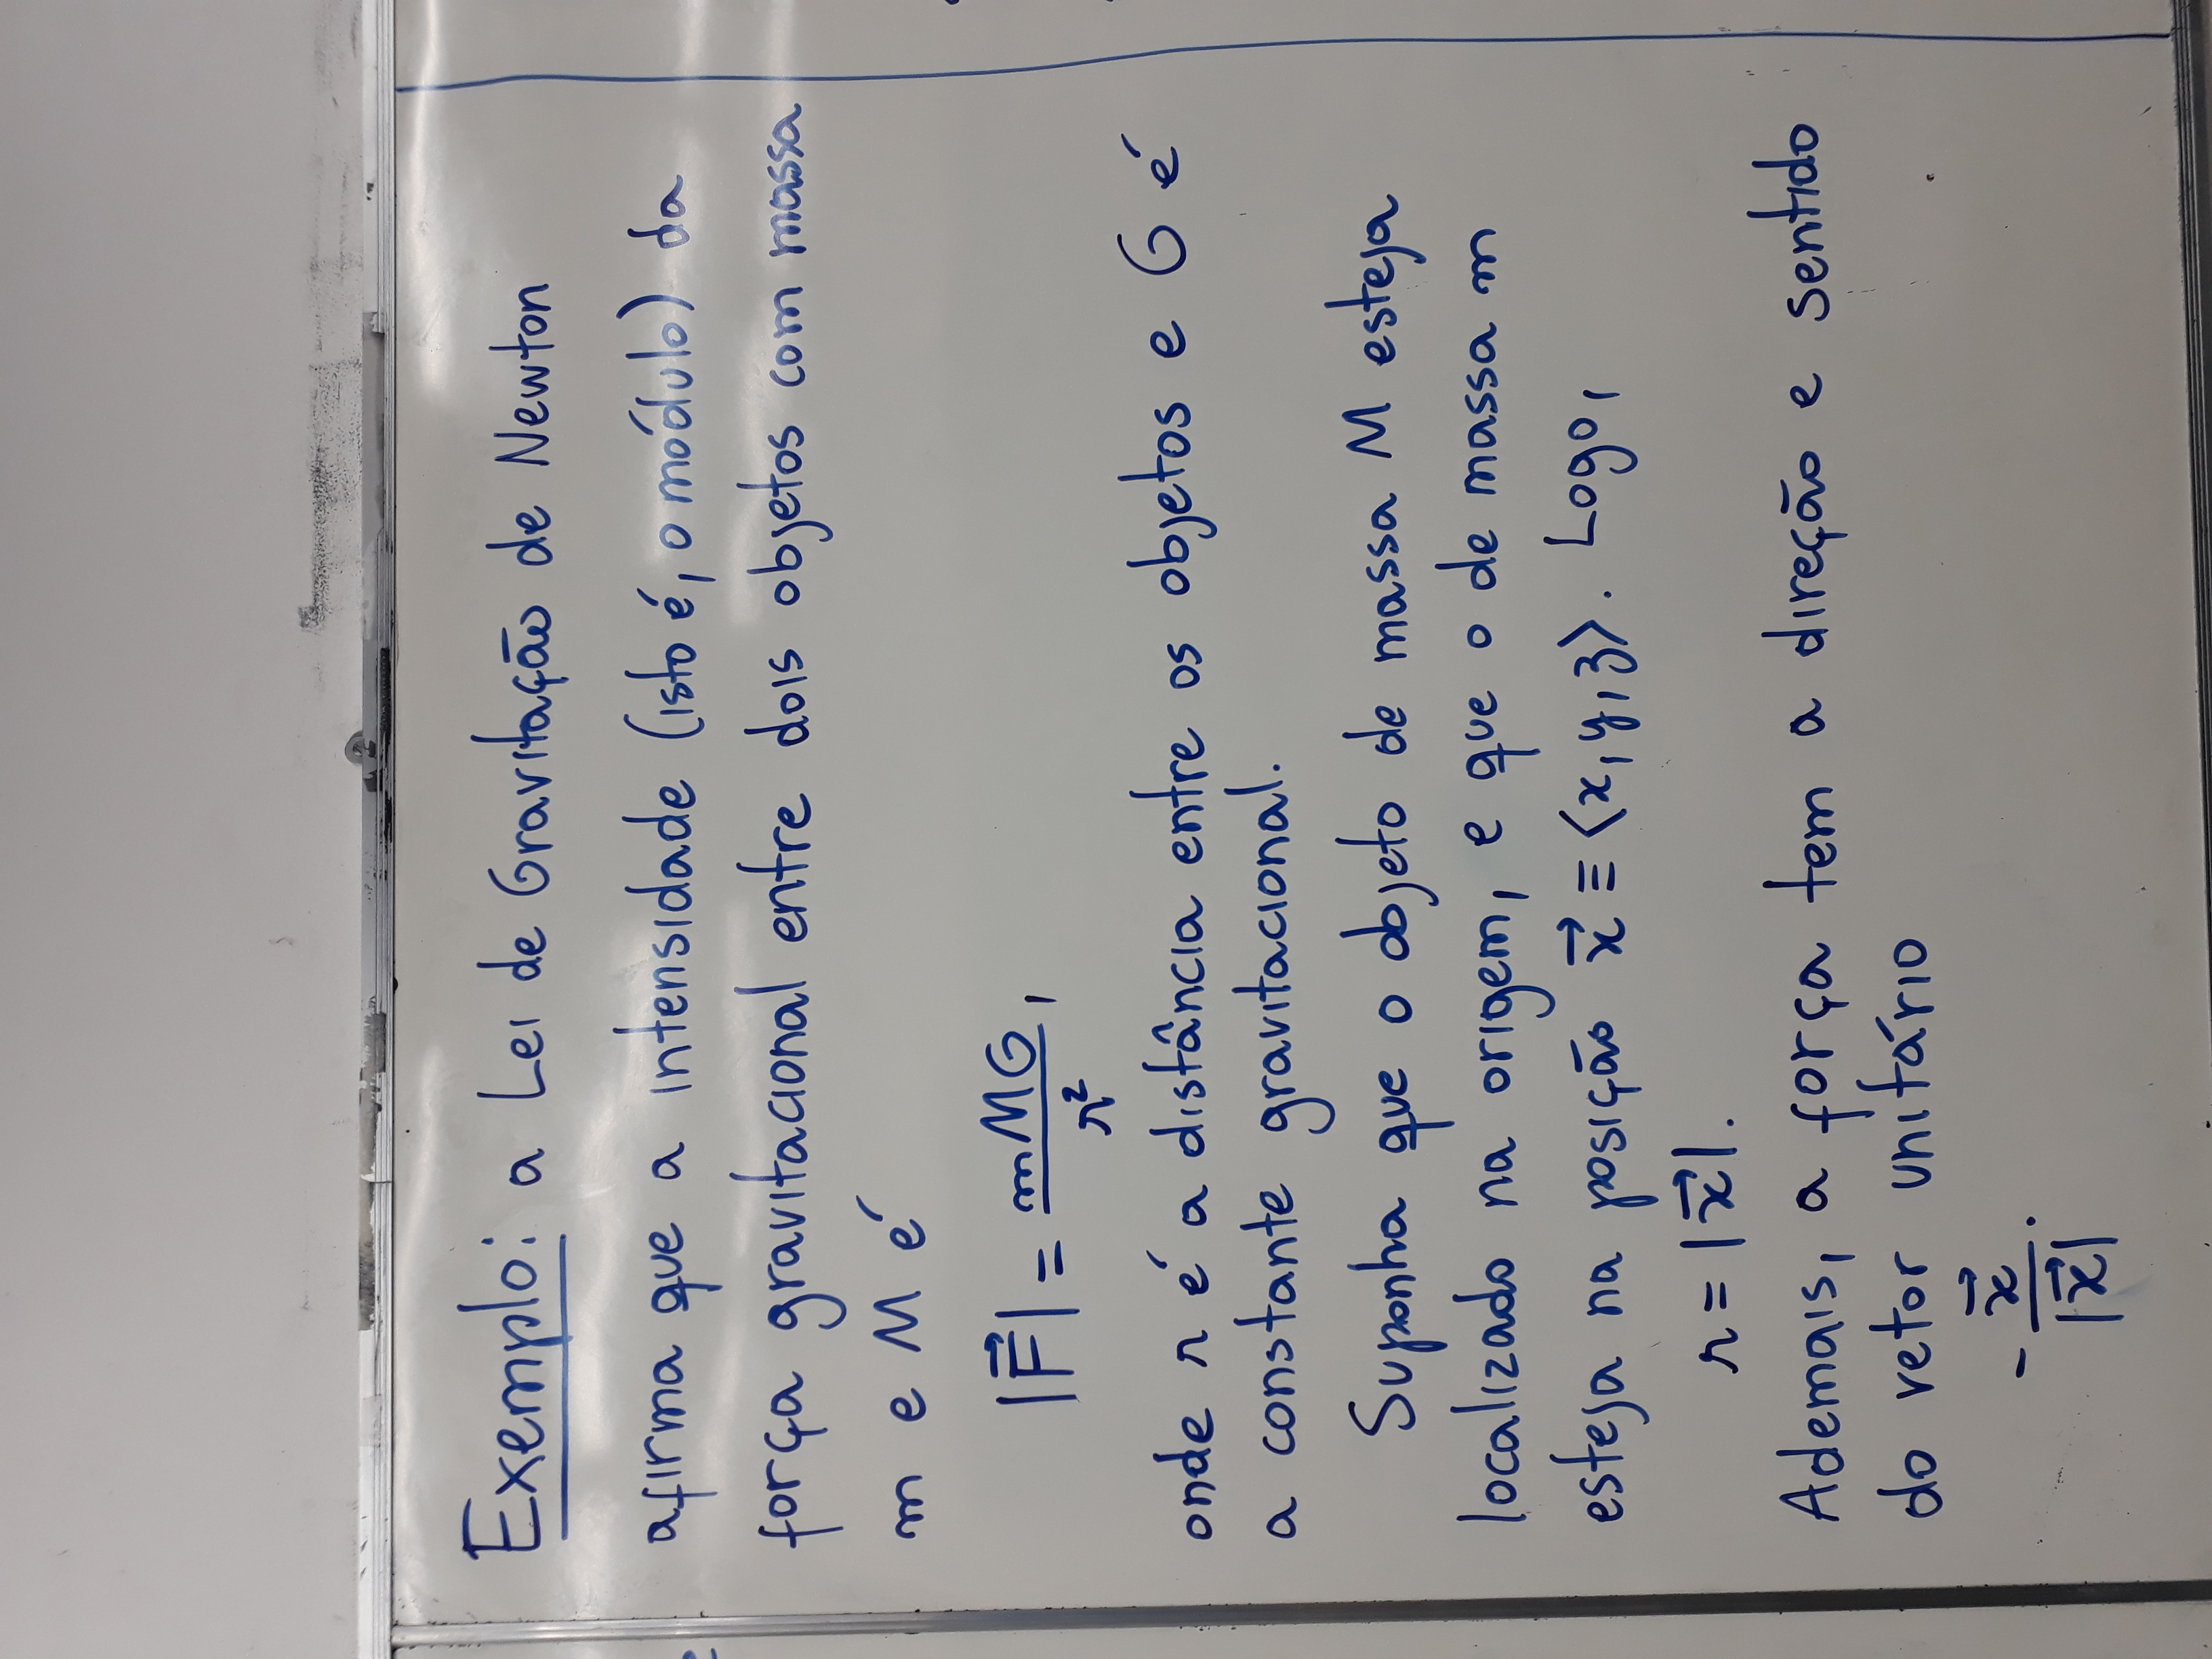 Exemplo: a Lei de Gravitação de Newton
afirma que a intensidade (isto é, o módulo) da
força gravitacional entre dois objetos com massa
m e M é
|F⃗| = mMG/r²,
onde r é a distância entre os objetos e G é
a constante gravitacional.
Suponha que o objeto de massa M esteja
localizado na origem, e que o de massa m
esteja na posição x⃗ ≡ ⟨x, y, z⟩. Logo,
r = |x⃗|.
Ademais, a força tem a direção e sentido
do vetor unitário
- x⃗/|x⃗|.